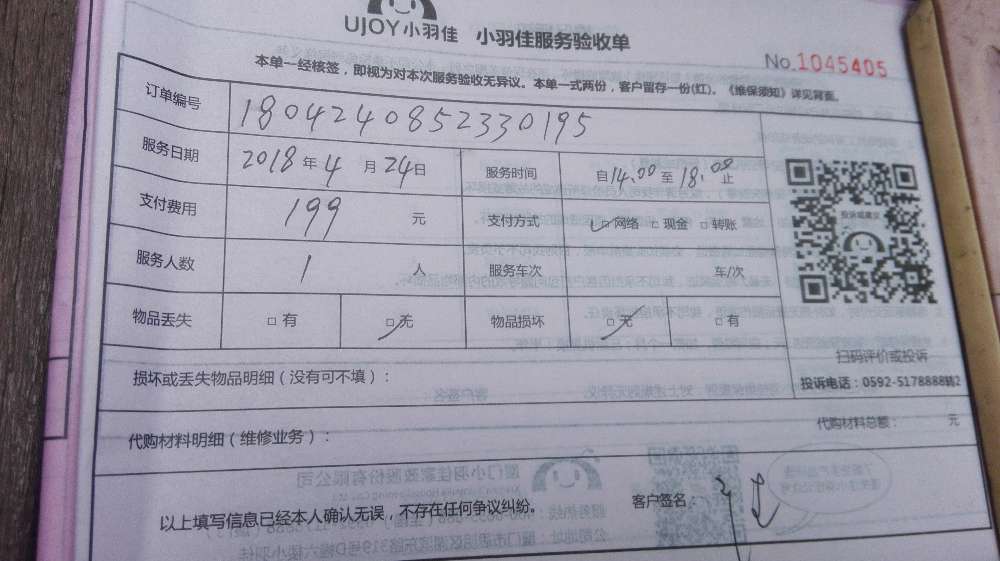 UJOY小羽佳 小羽佳服务验收单
No.1045405
本单一经核签，即视为对本次服务验收无异议。本单一式两份，客户留存一份(红)。《维保须知》详见背面。
订单编号 1804240852330195
服务日期 2018年4月24日 服务时间 自14.00至18:00止
支付费用 199 元 支付方式 □网络 □现金 □转账
投诉或建议
服务人数 1 人 服务车次 车/次
物品丢失 □有 □无 物品损坏 □无 □有
扫码评价或投诉
损坏或丢失物品明细（没有可不填）：
投诉电话：0592-5178888转2
代购材料明细（维修业务）：
代购材料总额： 元
以上填写信息已经本人确认无误，不存在任何争议纠纷。 客户签名：